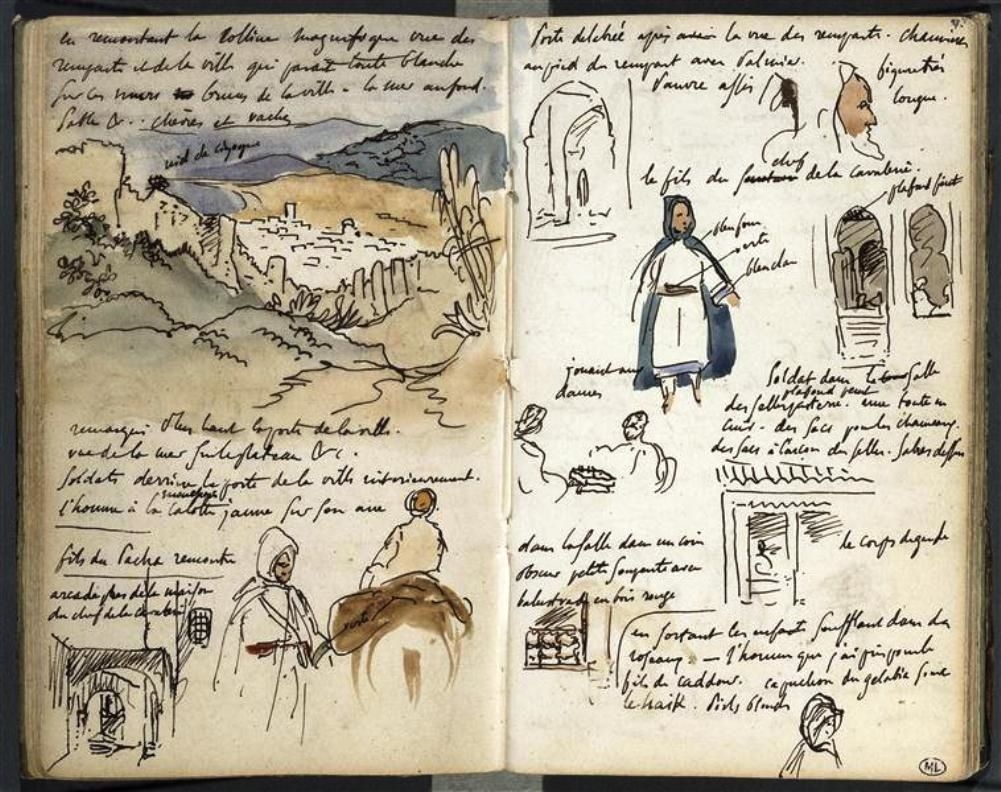 en remontant la colline magnifique vue des
remparts et de la ville qui parait toute blanche
sur les murs bruns de la ville - la mer au fond.
sable &. chèvres et vaches
nid de cigogne
remarqué plus haut la porte de la ville.
vue de la mer sur le plateau &c.
Soldats derrière la porte de la ville intérieurement.
l'homme à la calotte jaune sur son ane
fils du Pacha rencontré
arcade près de la maison
du chef de la cavalerie
verte
Porte delabrée après avoir la vue des remparts. chaumières
au pied du rempart avec
pauvre assis
figure très
longue.
chef
le fils du de la cavalerie.
plafond peint
bleu foncé
verte
blanc
jouant aux
dames
Soldat dans la salle
plafond peint
des selles par terre. une toute en
cuir - des sacs pour les chameaux.
des sacs à l'arçon des selles. Sabres dessus
le corps de garde
dans la salle dans un coin
obscur petite soupente avec
balustrade en bois rouge
en sortant les enfants soufflant dans des
roseaux. - l'homme que j'ai pris pour le
fils du caddour. capuchon du gelabia sous
le haïk. Pieds
ML